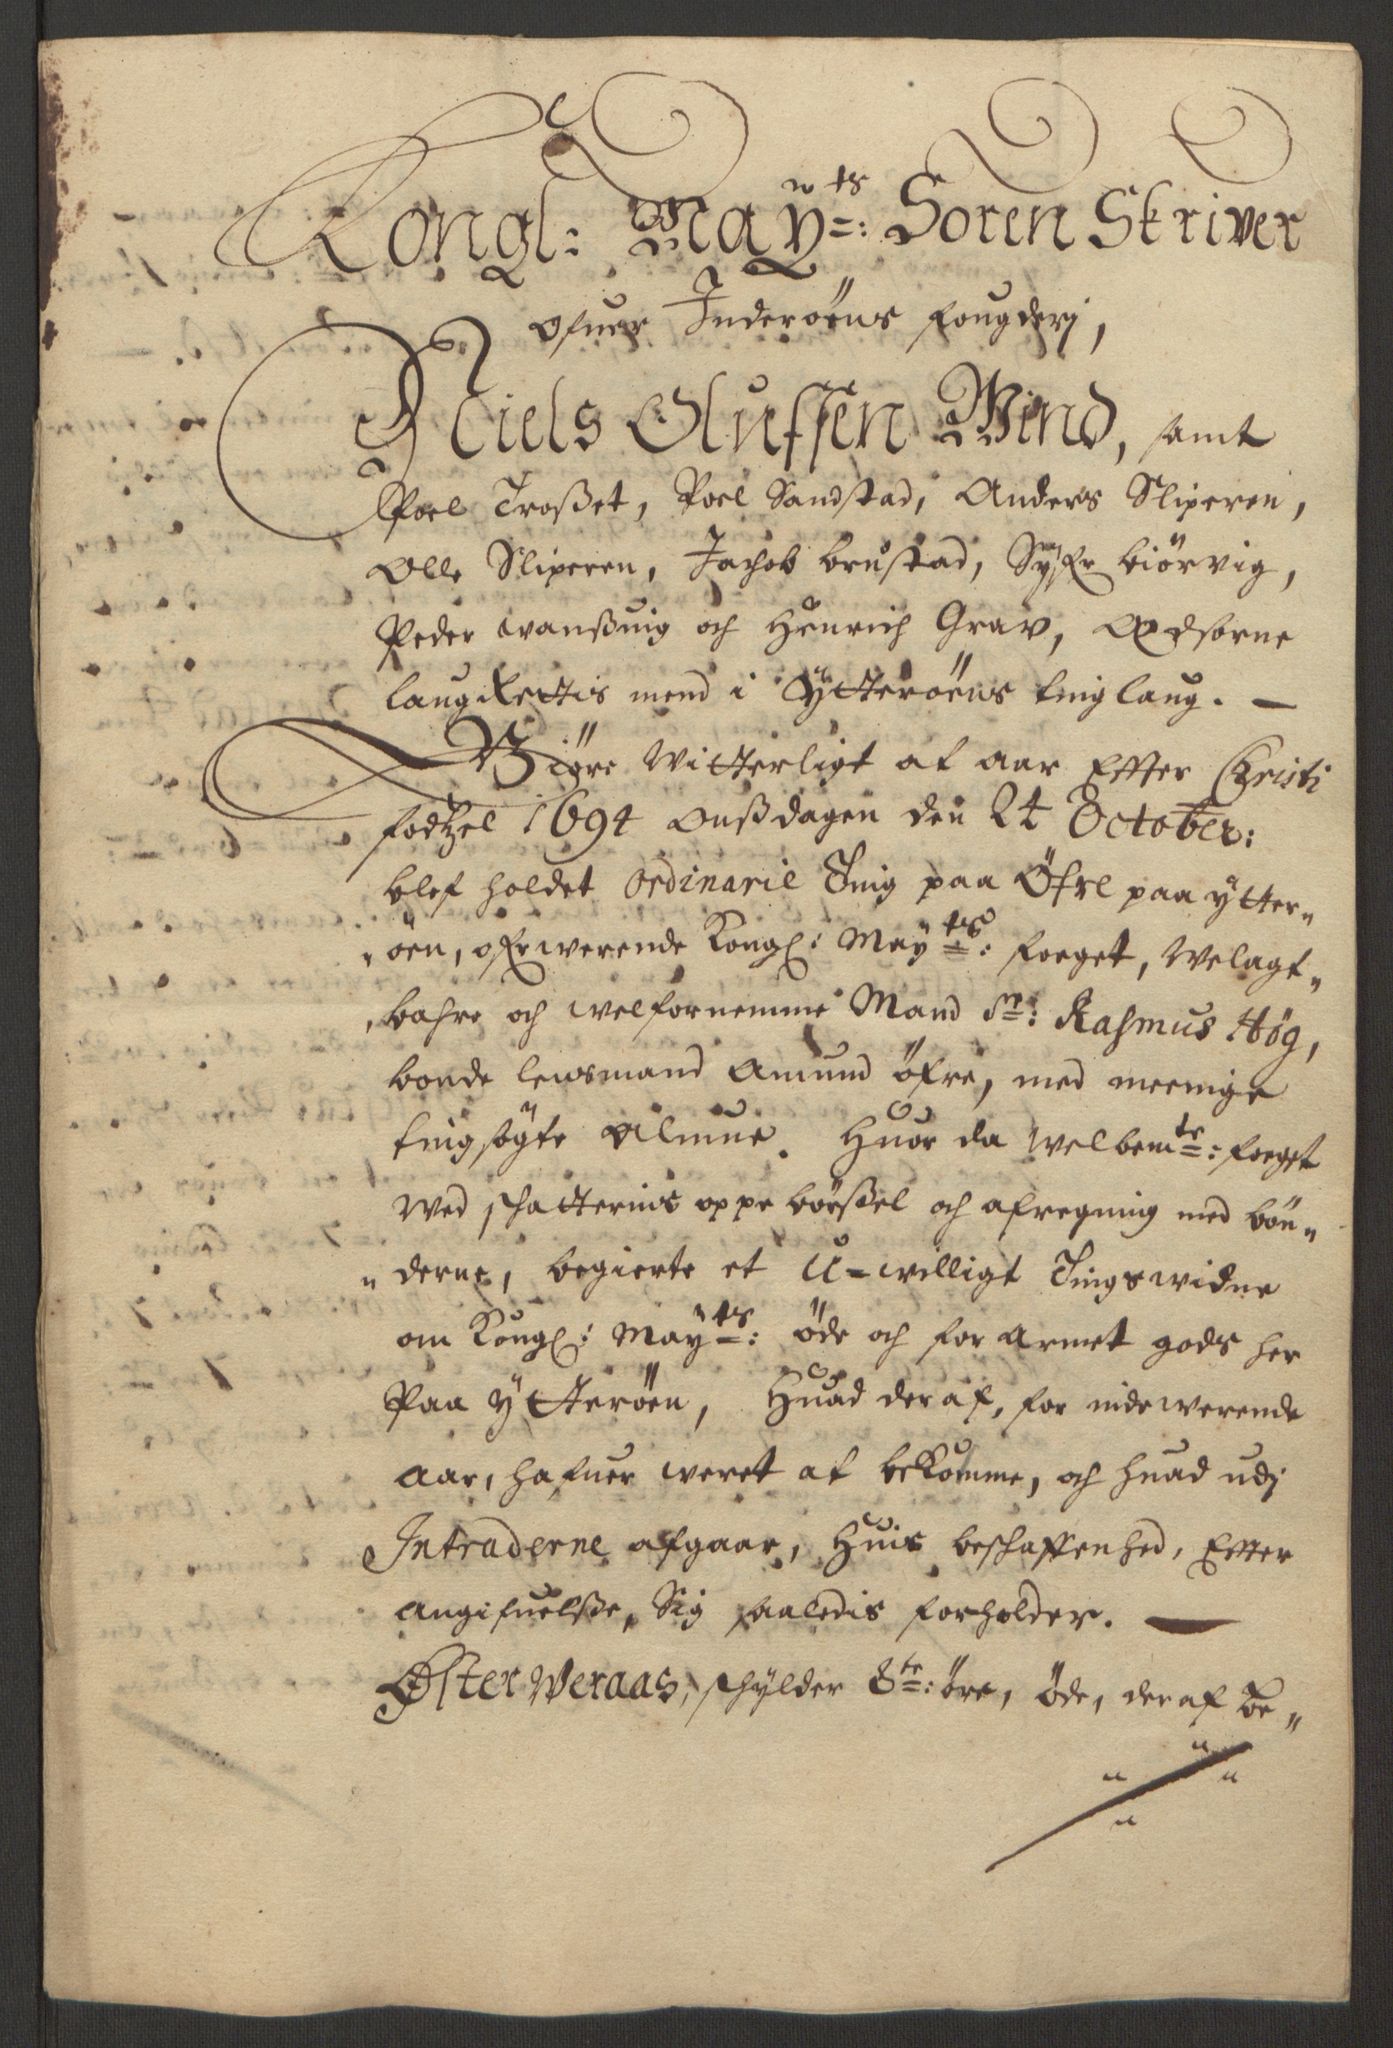 Kongl: Mayts: Soren Skriver
ofuer Inderöens fougderj,
Niels Olufssen Wind, samt
Poel Troßet, Poel Sandstad, Anders Sliperen,
Olle Sliperen, Jachob brustad, Syfr biörvig,
Peder wanßuig och Henrich Grav, Edsorne
laugRettis mend i Ÿtteröens tinglaug. —
Giöre Witterligt at aar Effter Christi
fodtzel 1694 onßdagen den 24 October:
blef holdet ordinarie Ting paa Öfre paa ÿtter„
„öen, ofrwerende Kongl: Mayts: foeget, Welagt„
„bahre och welfornemme Mand Sr: Rasmus Hög,
bonde lensmand Amund öfre, med meenige
tingsögte Almue. Huor da welbemte: foeget
wed schatternis oppe börßel och afregning med bön„
„derne, begierte et U-willigt Tingswidne
om Kongl: Mayts: öde och for armet gods her
Paa ÿtteröen, Huad deraf, for indewerende
aar, hafuer weret at bekomme, och huad udj
Intraderne afgaar, Huis beschaffenhed, Effter
angifuelsße, Sig saaledis forholder. —
Öster Weraas, schylder 8te: öre, öde, deraf be„